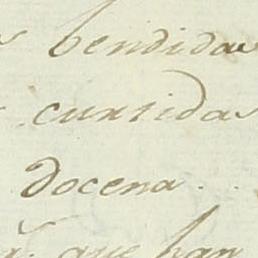 bendidas
curtidas
docena.
que han